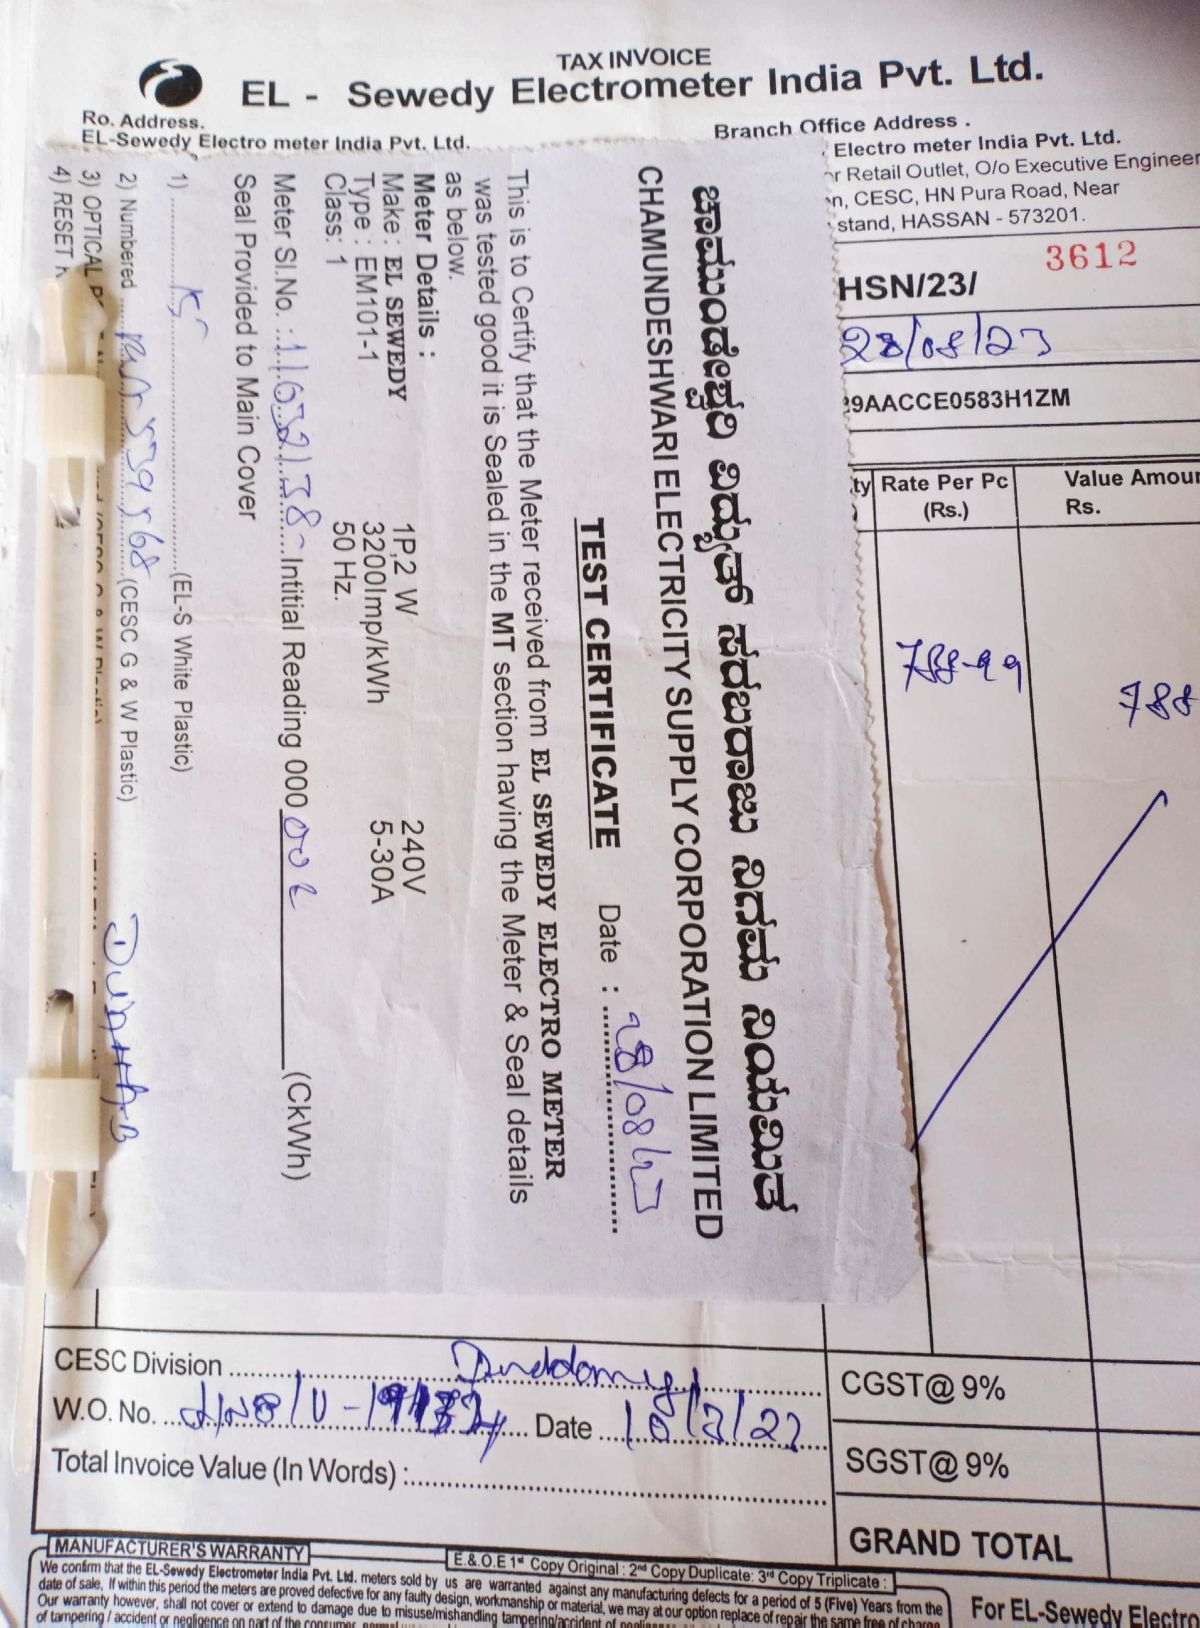 TAX INVOICE
EL - Sewedy Electrometer India Pvt. Ltd.
Ro. Address.
EL-Sewedy Electro meter India Pvt. Ltd.
Branch Office Address .
Electro meter India Pvt. Ltd.
Retail Outlet, O/o Executive Engineer
CESC, HN Pura Road, Near
stand, HASSAN - 573201.
HSN/23/ 3612
28/08/23
29AACCE0583H1ZM
ty Rate Per Pc (Rs.)
Value Amou
Rs.
788-99
788
ಚಾಮುಂಡೇಶ್ವರಿ ವಿದ್ಯುತ್ ಸರಬರಾಜು ನಿಗಮ ನಿಯಮಿತ
CHAMUNDESHWARI ELECTRICITY SUPPLY CORPORATION LIMITED
TEST CERTIFICATE Date : 28/08/23
This is to Certify that the Meter received from EL SEWEDY ELECTRO METER
was tested good it is Sealed in the MT section having the Meter & Seal details
as below.
Meter Details :
Make : EL SEWEDY 1P,2 W 240V
Type : EM101-1 3200Imp/kWh 5-30A
Class: 1 50 Hz.
Meter Sl.No. : Intitial Reading 000 (CkWh)
Seal Provided to Main Cover
1) (EL-S White Plastic)
2) Numbered (CESC G & W Plastic)
3) OPTICAL
4) RESET
CESC Division
W.O. No. Date
Total Invoice Value (In Words) :
CGST@ 9%
SGST@ 9%
GRAND TOTAL
MANUFACTURER'S WARRANTY
E.& O.E 1st Copy Original : 2nd Copy Duplicate: 3rd Copy Triplicate :
We confirm that the EL-Sewedy Electrometer India Pvt. Ltd. meters sold by us are warranted against any manufacturing defects for a period of 5 (Five) Years from the
date of sale, If within this period the meters are proved defective for any faulty design, workmanship or material, we may at our option replace of repair the same free of charge
Our warranty however, shall not cover or extend to damage due to misuse/mishandling tampering/accident of
of tampering / accident or negligence on part of the consumer,
For EL-Sewedy Electro